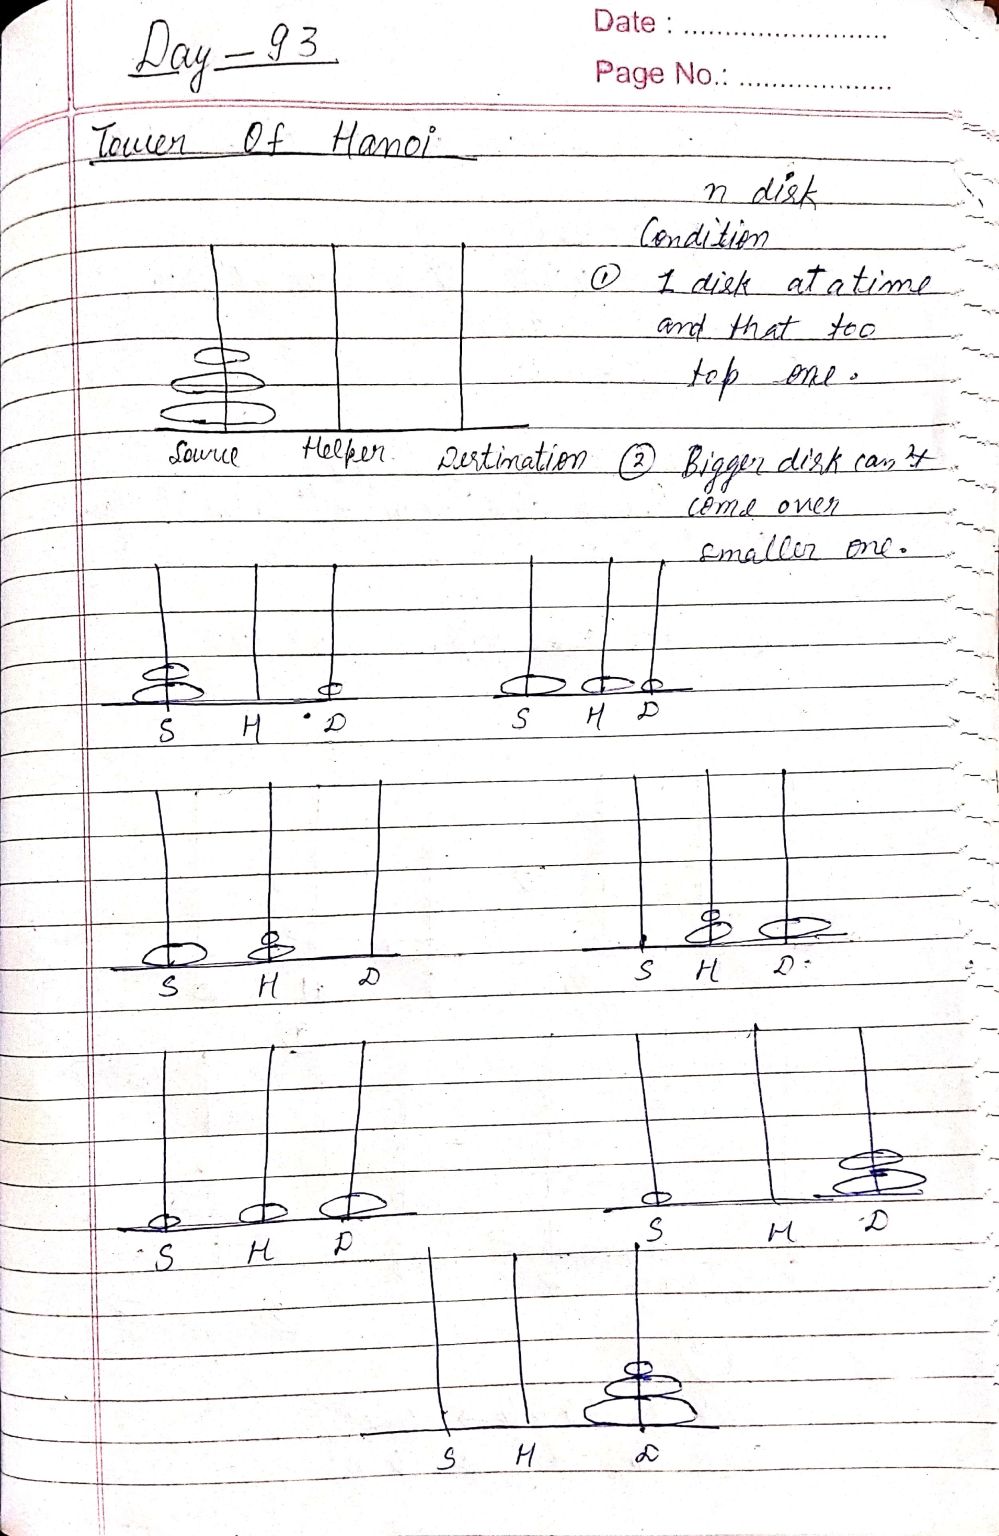 Day - 93
Date : ............................
Page No.: .....................
Tower Of Hanoi
n disk
Condition
① 1 disk at a time
and that too
top one.
Source Helper Destination
② Bigger disk can't
come over
smaller one.
S H D
S H D
S H D
S H D
S H D
S H D
S H D